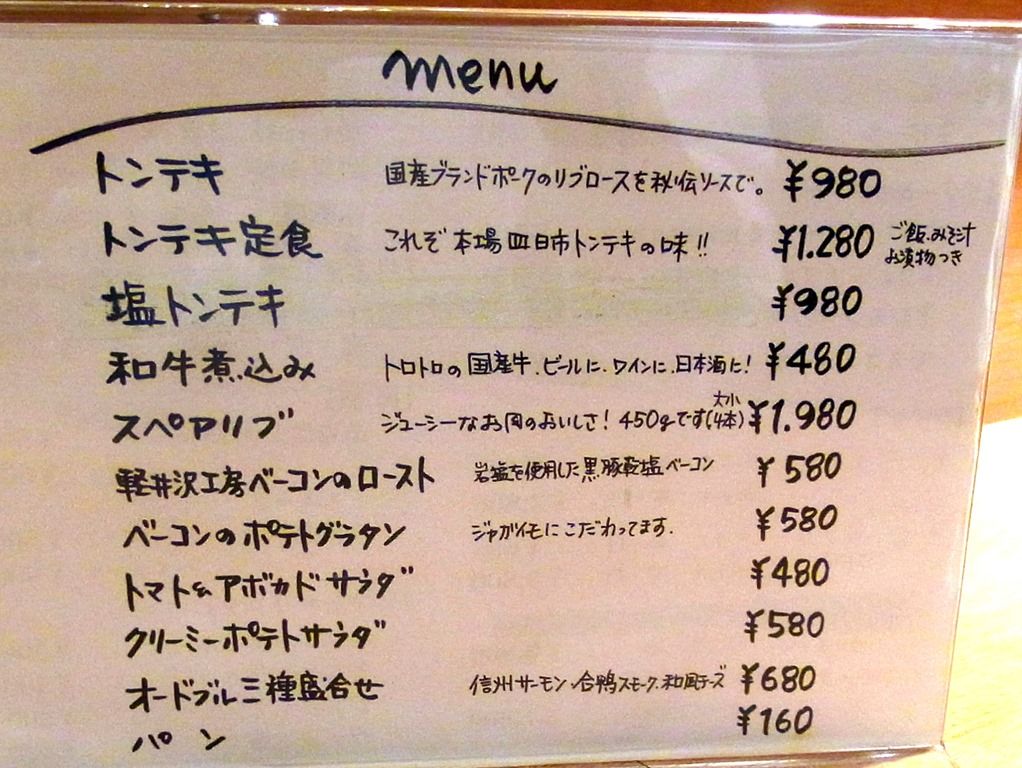 menu
トンテキ 国産ブランドポークのリブロースを秘伝ソースで。 ¥980
トンテキ定食 これぞ本場四日市トンテキの味!! ¥1.280 ご飯.みそ汁
お漬物つき
塩トンテキ ¥980
和牛煮込み トロトロの国産牛.ビールに、ワインに、日本酒に! ¥480
スペアリブ ジューシーなお肉のおいしさ! 450gです(大小4本) ¥1.980
軽井沢工房ベーコンのロースト 岩塩を使用した黒豚乾塩ベーコン ¥580
ベーコンのポテトグラタン ジャガイモにこだわってます. ¥580
トマト&アボカドサラダ ¥480
クリーミーポテトサラダ ¥580
オードブル三種盛合せ 信州サーモン、合鴨スモーク、和風チーズ ¥680
パン ¥160